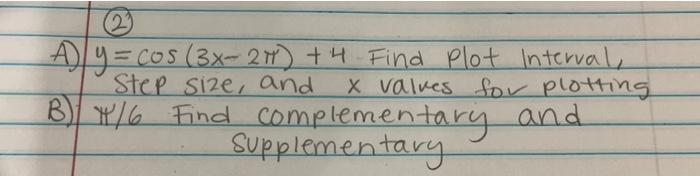 ②
A) y = cos (3x - 2π) + 4 Find Plot Interval,
Step size, and x values for plotting
B) π/6 Find complementary and
Supplementary